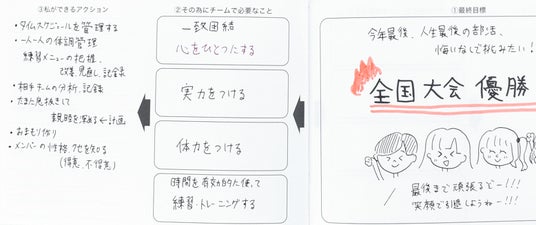 ③私ができるアクション
・タイムスケジュールを管理する
・一人一人の体調管理
練習メニューの把握、
改善見直し、記録
・相手チームの分析、記録
・たまに息抜きして
親睦を深める←計画
・おまもり作り
・メンバーの性格、クセを知る
(得意、不得意)
②その為にチームで必要なこと
一致団結
心をひとつにする
実力をつける
体力をつける
時間を有効的に使って
練習・トレーニングする
①最終目標
今年最後、人生最後の部活、
悔いなしで挑みたい!
全国大会優勝
最後まで頑張るでー!!!
笑顔で引退しようねー!!!